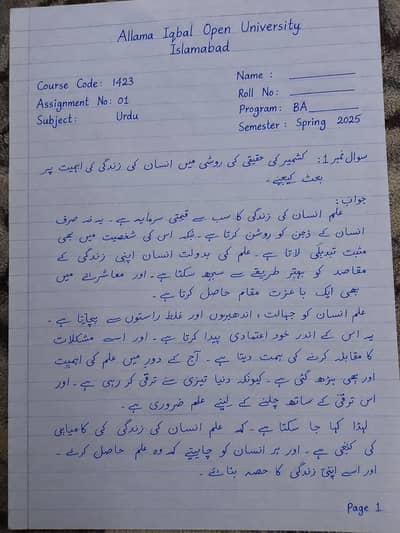 Allama Iqbal Open University
Islamabad
Course Code: 1423
Name :
Assignment No: 01
Roll No:
Subject: Urdu
Program: BA
Semester: Spring 2025
سوال نمبر 1: کشمیر کی حقیقی کی روشی میں انسان کی زندگی کی اہمیت پر
بحث کیجیے۔
جواب:
علم انسان کی زندگی کا سب سے قیمتی سرمایہ ہے۔ یہ نہ صرف
انسان کے ذہن کو روشن کرتا ہے۔ بلکہ اس کی شخصیت میں بھی
مثبت تبدیلی لاتا ہے۔ علم کی بدولت انسان اپنی زندگی کے
مقاصد کو بہتر طریقے سے سمجھ سکتا ہے۔ اور معاشرے میں
بھی ایک باعزت مقام حاصل کرتا ہے۔
علم انسان کو جہالت، اندھیروں اور غلط راستوں سے بچاتا ہے۔
یہ اس کے اندر خود اعتمادی پیدا کرتا ہے۔ اور اسے مشکلات
کا مقابلہ کرنے کی ہمت دیتا ہے۔ آج کے دور میں علم کی اہمیت
اور بھی بڑھ گئی ہے۔ کیونکہ دنیا تیزی سے ترقی کر رہی ہے۔ اور
اس ترقی کے ساتھ چلنے کے لیئے علم ضروری ہے۔
لہذا کہا جا سکتا ہے۔ کہ علم انسان کی زندگی کی کامیابی
کی کنجی ہے۔ اور ہر انسان کو چاہیئے کہ وہ علم حاصل کرے۔
اور اسے اپنی زندگی کا حصہ بنائے۔
Page 1